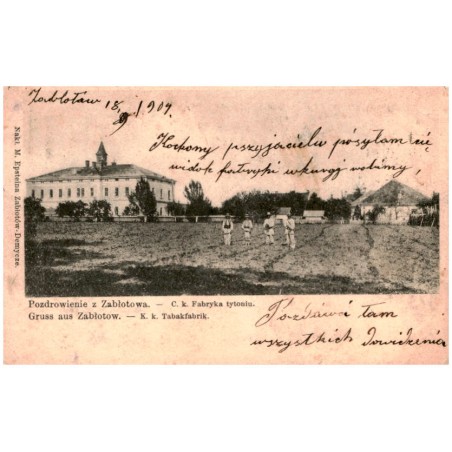 Zabłotów 18/9 1904
Kochony pszyjacielu posyłam cię
widok fabryki wkurgi robimy,
Nakł. M. Epsteina Zabłotów-Demycze.
Pozdrowienie z Zabłotowa. — C. k. Fabryka tytoniu.
Gruss aus Zabłotow. — K. k. Tabakfabrik.
Pozdawiá tam
wszystkich Dowidzenia